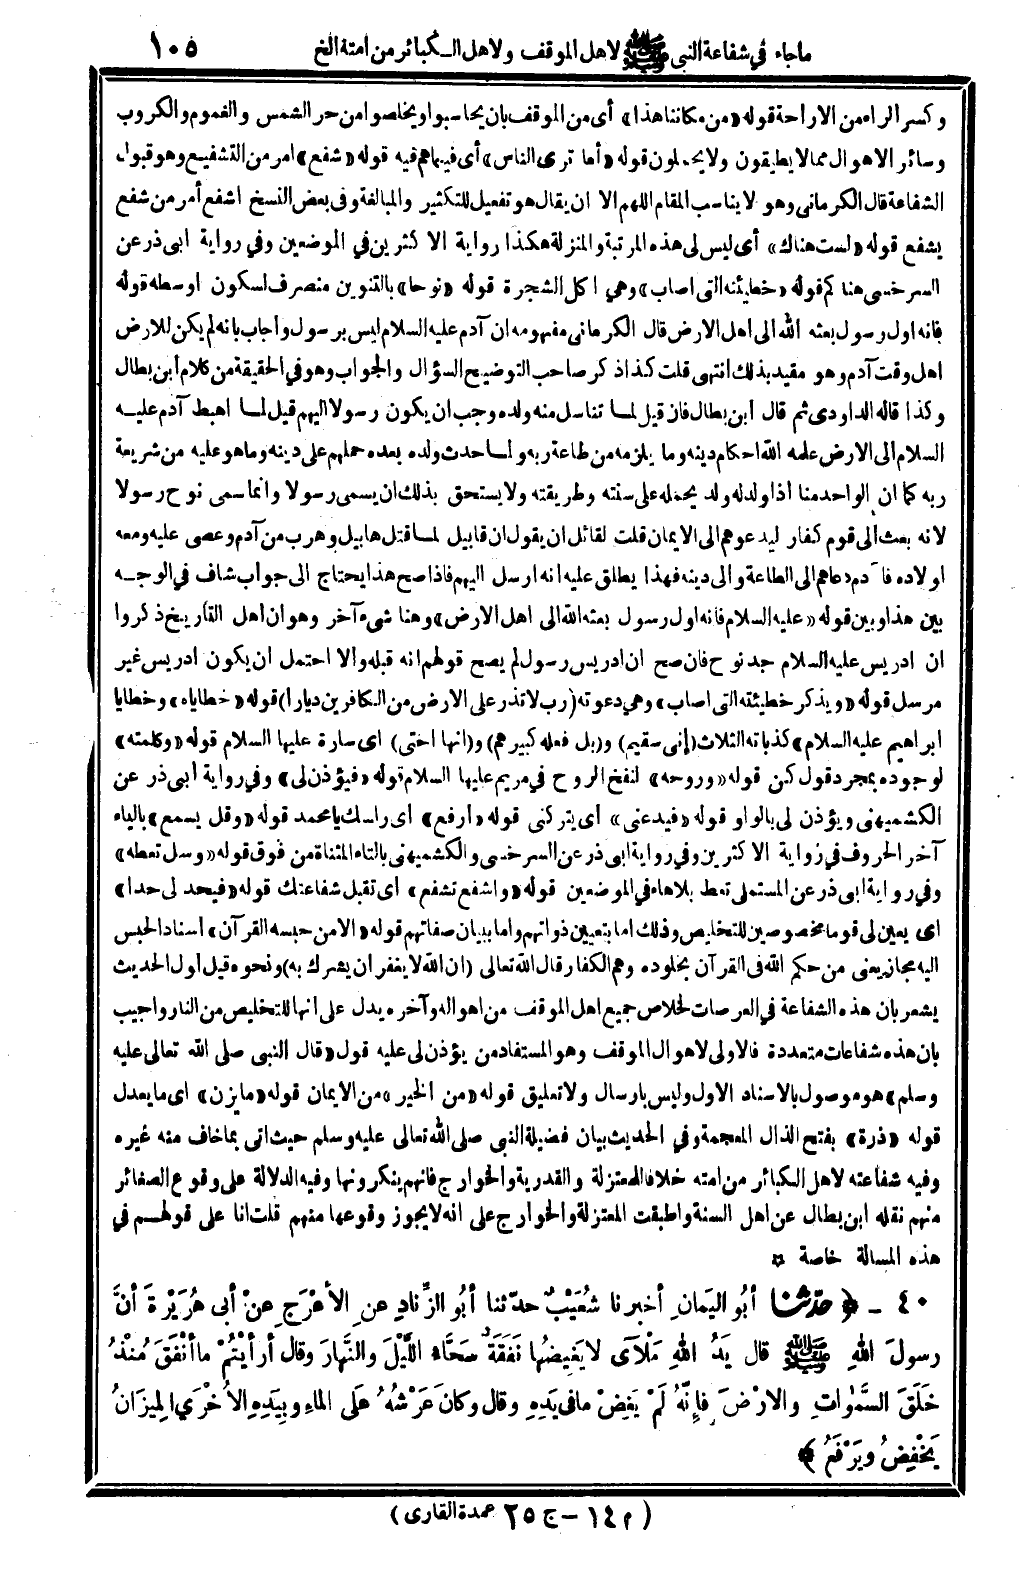 ماجاء في شفاعة النبي ﷺ لاهل الموقف ولاهل الـكبائر من امتة الخ ١٠٥
وكسر الراء من الاراحة قوله «من مكاننا هذا» أى من الموقف بان يحاسبوا ويخلصوا من حر الشمس والغموم والكروب
وسائر الاهوال مما لا يطيقون ولا يحملون قوله «أما ترى الناس» أى فيما هم فيه قوله «شفع» امر من التشفيع وهو قبول
الشفاعة قال الكرمانى وهو لا يناسب المقام اللهم الا ان يقال هو تفعيل للتكثير والمبالغة وفى بعض النسخ اشفع أمر من شفع
يشفع قوله «لست هناك» أى ليس لى هذه المرتبة والمنزلة هكذا رواية الاكثرين في الموضعين وفي رواية ابى ذر عن
السرخسى هناكم قوله «خطيئته التى اصاب» وهي اكل الشجرة قوله «نوحا» بالتنوين منصرف لسكون اوسطه قوله
فانه اول رسول بعثه الله الى اهل الارض قال الكرمانى مفهومه ان آدم عليه السلام ليس برسول وأجاب بانه لم يكن للارض
اهل وقت آدم وهو مقيد بذلك انتهى قلت كذا ذكر صاحب التوضيح السؤال والجواب وهو في الحقيقة من كلام أبن بطال
وكذا قاله الداودى ثم قال ابن بطال فان قيل لمـا تناسل منه ولده وجب ان يكون رسولا اليهم قيل لمـا اهبط آدم عليـه
السلام الى الارض علمه الله احكام دينه وما يلزمه من طاعة ربه ولمـا حدث ولده بعده حملهم على دينه وما هو عليه من شريعة
ربه كما ان الواحد منا أذا ولد له ولد يحمله على سنته وطريقته ولا يستحق بذلك ان يسمى رسولا وانما سمى نوح رسولا
لانه بعث الى قوم كفار ليدعوهم الى الايمان قلت لقائل ان يقول ان قابيل لما قتل هابيل وهرب من آدم وعصى عليه ومعه
اولاده فآدم دعاهم الى الطاعة والى دينه فهذا يطلق عليه انه ارسل اليهم فاذا صح هذا يحتاج الى جواب شاف في الوجـه
بين هذا وبين قوله «عليه السلام فانه اول رسول بعثه الله الى اهل الارض» وهنا شىء آخر وهو ان اهل التأريخ ذكروا
ان ادريس عليه السلام جد نوح فان صح ان ادريس رسول لم يصح قولهم انه قبله والا احتمل ان يكون ادريس غير
مرسل قوله «ويذكر خطيئته التى اصاب» وهي دعوته (رب لا تذر على الارض من الكافرين ديارا) قوله «خطاياه» وخطايا
ابراهيم عليه السلام» كذباته الثلاث (إنى سقيم) و(بل فعله كبيرهم) و(انها اختى) اى سارة عليها السلام قوله «وكلمته»
لوجوده بمجرد قول كن قوله «وروحه» لنفخ الروح في مريم عليها السلام قوله «فيؤذن لى» وفي رواية ابى ذر عن
الكشميهنى ويؤذن لى بالواو قوله «فيدعنى» اى يتركنى قوله «ارفع» اى راسك يا محمد قوله «وقل يسمع» بالياء
آخر الحروف في رواية الاكثرين وفي رواية ابى ذر عن السرخسى والكشميهنى بالتاء المثناة من فوق قوله «وسل تعطه»
وفي رواية ابى ذر عن المستملى تعط بلا هاء في الموضعين قوله «واشفع تشفع» اى تقبل شفاعتك قوله «فيحد لى حدا»
اى يعين لى قوما مخصوصين للتخليص وذلك اما بتعيين ذواتهم واما ببيان صفاتهم قوله «الا من حبسه القرآن» أسناد الحبس
اليه مجاز يعنى من حكم الله فى القرآن بخلوده وهم الكفار قال الله تعالى (ان الله لا يغفر ان يشرك به) ونحوه قيل اول الحديث
يشعر بان هذه الشفاعة في العرصات لخلاص جميع اهل الموقف من اهواله وآخره يدل على انها للتخليص من النار واجيب
بان هذه شفاعات متعددة فالاولى لاهوال الموقف وهو المستفاد من يؤذن لى عليه قول «قال النبى صلى الله تعالى عليه
وسلم» هو موصول بالاسناد الاول وليس بارسال ولا تعليق قوله «من الخير» من الايمان قوله «ما يزن» اى ما يعدل
قوله «ذرة» بفتح الذال المعجمة وفي الحديث بيان فضيلة النبى صلى الله تعالى عليه وسلم حيث اتى بما خاف منه غيره
وفيه شفاعته لاهل الكبائر من امته خلافا للمعتزلة والقدرية والخوارج فانهم ينكرونها وفيه الدلالة على وقوع الصغائر
منهم نقله ابن بطال عن اهل السنة واطبقت المعتزلة والخوارج على انه لا يجوز وقوعها منهم قلت انا على قولهـم في
هذه المسالة خاصة ✿
٤٠ - ﴿ حَدَّثَنَا أبُو اليَمَانِ أخبرنا شُعَيْبٌ حدّثنا أبُو الزِّنادِ عنِ الأَعْرَجِ عنْ أبى هُرَيْرَةَ أنَّ
رسولَ اللهِ ﷺ قال يَدُ اللهِ مَلْآى لا يَغِيضُها نَفَقَةٌ سَحَّاءُ اللَّيْلَ والنَّهارَ وقال أرأيْتُمْ ما أنْفَقَ مُنْذُ
خَلَقَ السَّمٰوَاتِ والارْضَ فإنَّهُ لَمْ يَغِضْ ما فى يَدِهِ وقال وكانَ عَرْشُهُ عَلَى الماءِ وبِيَدِهِ الأُخْرَى المِيزَانُ
يَخْفِضُ ويَرْفَعُ ﴾
(م ١٤ - ج ٢٥ عمدة القارى)